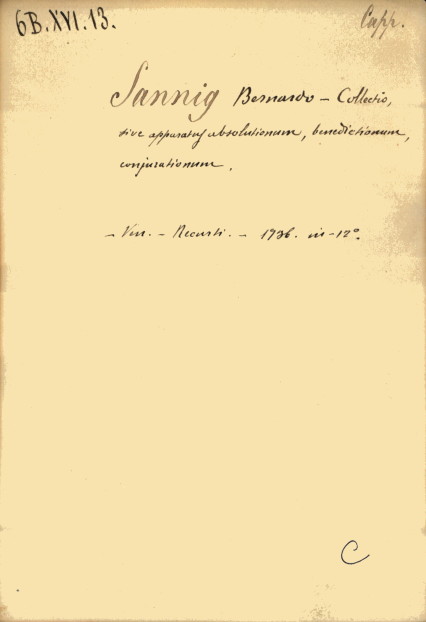 6B.XVI.13.
Capp.
Sannig Bernardo - Collectio,
sive apparatus absolutionum, benedictionum,
conjurationum.
- Ven. - Recurti. - 1736. in-12°.
C